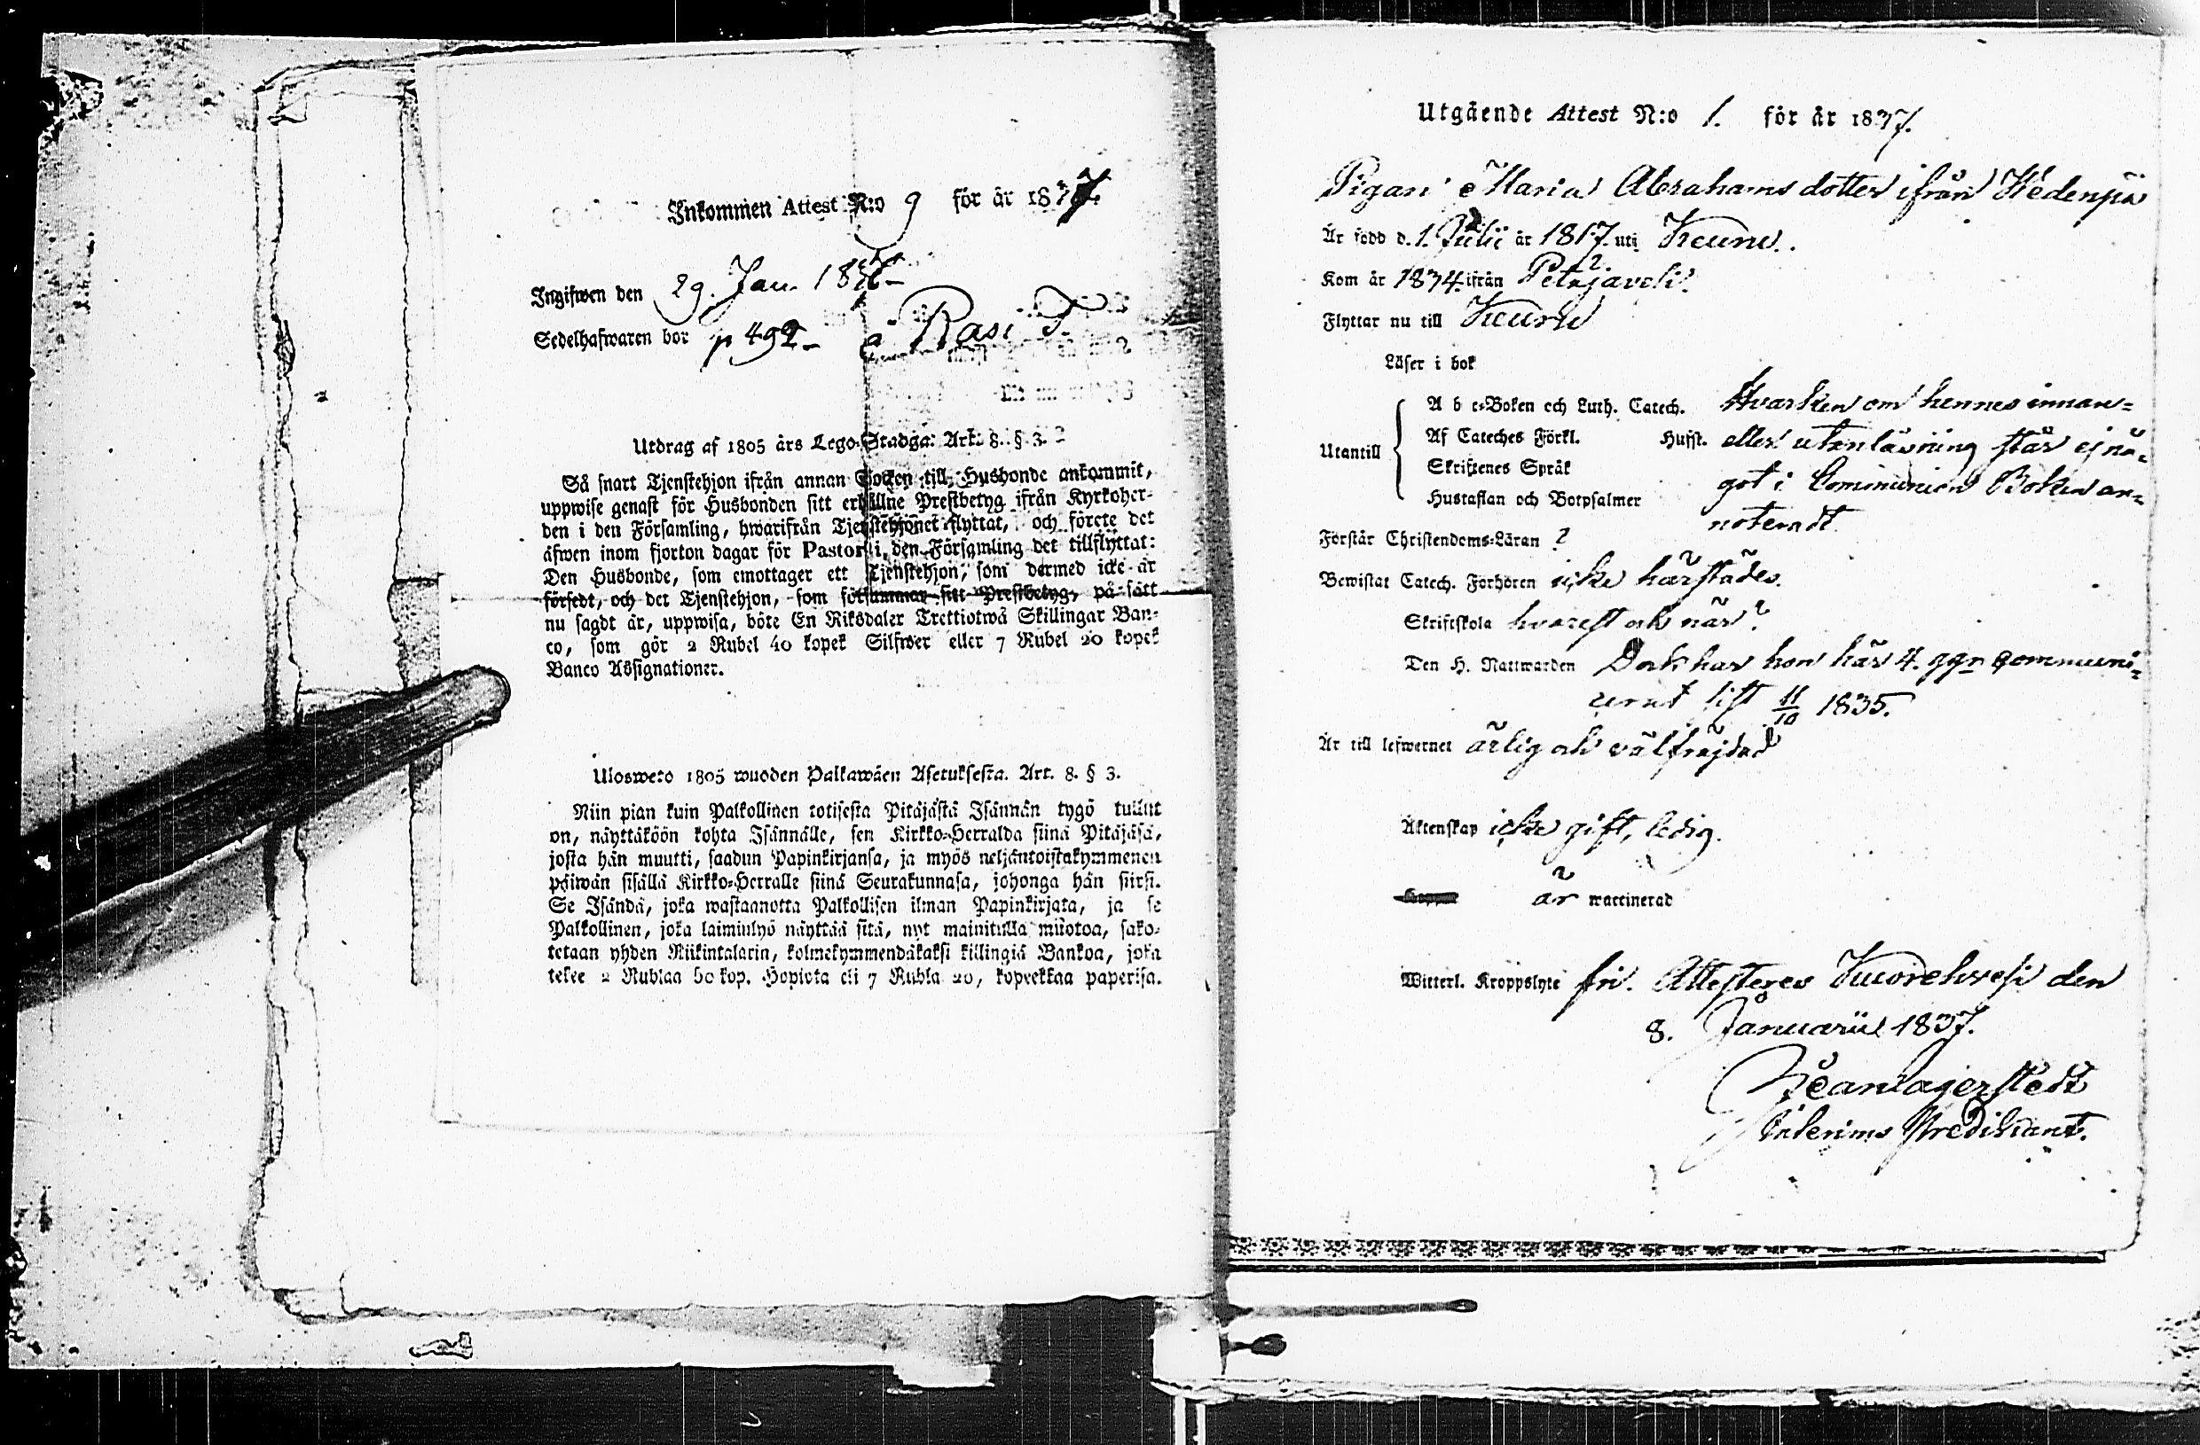 Inkommen Attest N:o 9 för år 1837.
Ingifwen den 29. Jan. 18
Sedelhafwaren bor p 492 - å Rasi T.
Utdrag af 1805 års Lego-Stadga: Art. 8. § 3.
Så snart Tjenstehjon ifrån annan Socken till Husbonde ankommit,
uppwise genast för Husbonden sitt erhållne Prestbetyg ifrån Kyrkoher-
den i den Församling, hwarifrån Tjenstehjonet flyttat, och förete det
äfwen inom fjorton dagar för Pastor i den Församling det tillflyttat:
Den Husbonde, som emottager ett Tjenstehjon, som dermed icke är
försedt, och det Tjenstehjon, som försummar sitt Prestbetyg, på sätt
nu sagdt är, uppwisa, böte En Riksdaler Trettiotwå Skillingar Ban-
co, som gör 2 Rubel 40 kopek Silfwer eller 7 Rubel 20 kopek
Banco Assignationer.
Ulosweto 1805 wuoden Palkawäen Asetuksesta. Art. 8. § 3.
Niin pian kuin Palkollinen toisesta Pitäjästä Isännän tygö tullut
on, näyttäköön kohta Isännälle, sen Kirkko-Herralda siinä Pitäjäsä,
josta hän muutti, saadun Papinkirjansa, ja myös neljäntoistakymmenen
päiwän sisällä Kirkko-Herralle siinä Seurakunnasa, johonga hän siirsi.
Se Isändä, joka wastaanotta Palkollisen ilman Papinkirjata, ja se
Palkollinen, joka laiminlyö näyttää sitä, nyt mainitulla muotoa, sako-
tetaan yhden Riikintalarin, kolmekymmendäkaksi killingiä Bankoa, joka
tekee 2 Rublaa 50 kop. Hopiota eli 7 Rubla 20, kopeekkaa paperisa.
Utgående Attest N:o 1. för år 1837.
Pigan Maria Abrahamsdotter ifrån Hedenpää
Är född d. 1. Julii år 1817. uti Keuru.
Kom år 1834. ifrån Petäjäveli.
Flyttar nu till Keuru
Läser i bok
A b c-Boken och Luth. Catech. Hvarken om hennes innan-
Utantill Af Cateches Förkl. Hufst. eller utanläsning står ej nå-
Skriftenes Språk
got i Communion Boken an-
Hustaflan och Botpsalmer
noteradt
Förstår Christendoms-Läran ?
Bewistat Catech. Förhören icke härstädes.
Skriftskola hvarest och när?
Den H. Nattwarden Dock har hon här 4. ggr communi-
cerat sist 11/10 1835.
Är till lefwernet ärlig och välfrejdad
Äktenskap icke gift, ledig.
är waccinerad
Witterl. Kroppslyte fri. Attesteres Kuorehvesi den
8. Januarii 1837.
Lagerstedt
Interims Predikant.